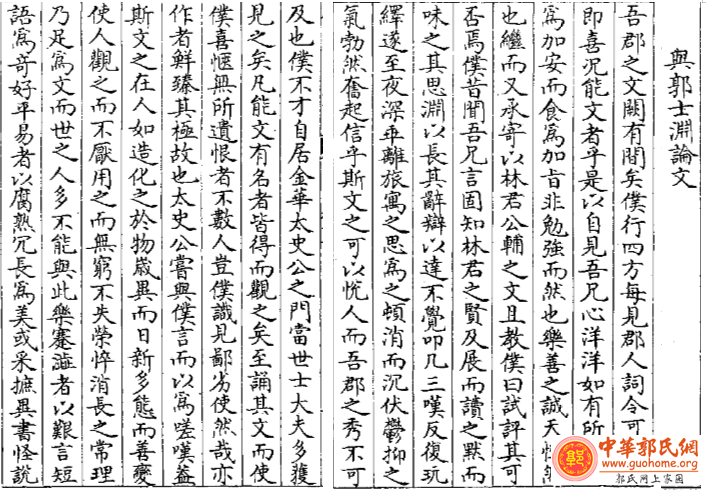 與郭士淵論文
吾郡之文闕有聞矣僕行四方每見郡人詞令可
即喜況能文者乎是以自見吾兄心洋洋如有所
爲加安而食爲加旨非勉強而然也樂善之誠天
也繼而又承寄以林君公輔之文且教僕曰試評其可
否焉僕昔聞吾兄言固知林君之賢及展而讀之默而
味之其思淵以長其辭辯以達不覺叩几三嘆反復玩
繹遂至夜深乖離旅寓之思爲之頓消而沉伏鬱抑之
氣勃然奮起信乎斯文之可以悅人而吾郡之秀不可
及也僕不才自居金華太史公之門當世士大夫多獲
見之矣凡能文有名者皆得而觀之矣至誦其文而使
僕喜愜無所遺恨者不數人豈僕識見鄙劣使然哉亦
作者鮮臻其極故也太史公嘗與僕言而以爲嗟嘆蓋
斯文之在人如造化之於物歲異而日新多態而善變
使人觀之而不厭用之而無窮不失榮悴消長之常理
乃足爲文而世之人多不能與此樂蹇澁者以艱言短
語爲奇好平易者以腐熟冗長爲美或采摭異書怪說
中華郭氏網
www.guohome.org
郭氏网上家園